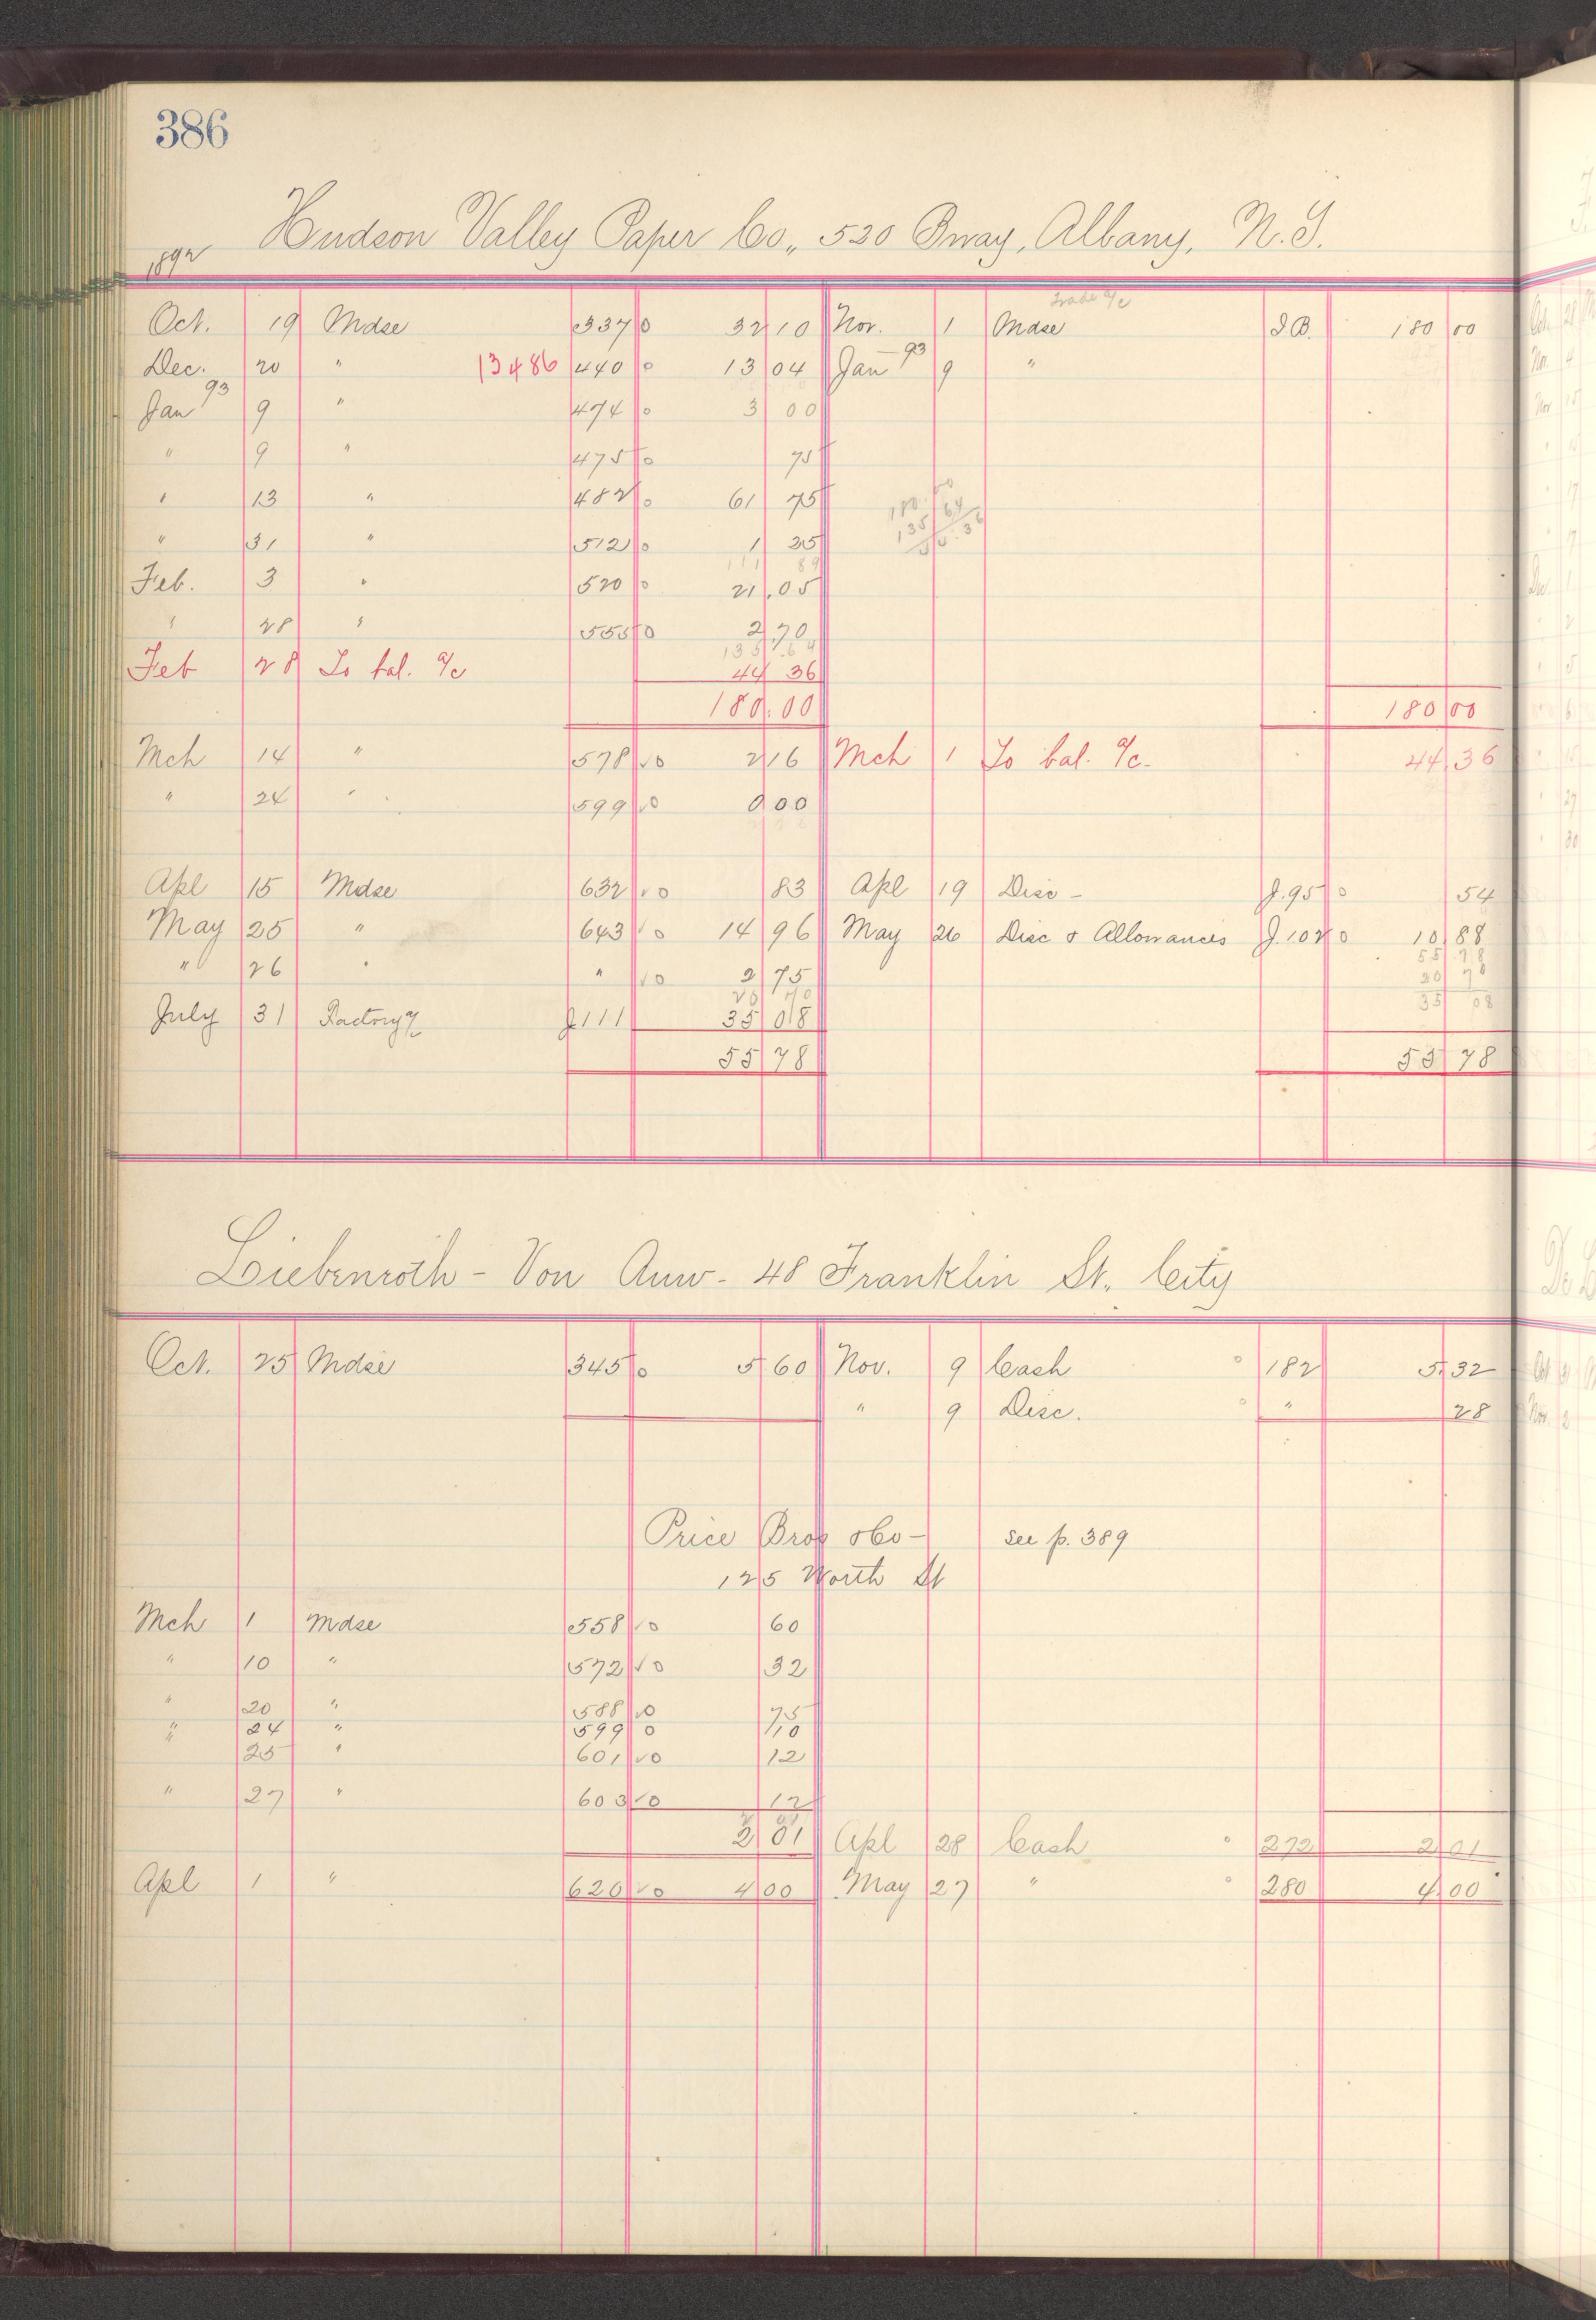 386
Hudson Valley Paper Co., 520 Bway, Albany, N.Y.
1892
Trade a/c
Oct. 19 Mdse 337 0 32 10 Nov. 1 Mdse I.B. 180 00
Dec. 20 " 13486 440 0 13 04 Jan 93 9 "
Jan 93 9 " 474 0 3 00
" 9 " 475 0 75
" 13 " 482 0 61 75
180.00
135 64
" 31 " 512 0 1 25
111 89
Feb. 3 " 520 0 21.05
" 28 " 555 0 2.70
135.64
Feb 28 To bal. a/c 44 36
180.00 180 00
Mch 14 " 578 0 2 16 Mch 1 To bal. a/c 44 36
" 24 " 599 0 0 00
Apl 15 Mdse 632 0 83 Apl 19 Disc - J.95 0 54
May 25 " 643 0 14 96 May 26 Disc & Allowances J.102 0 10 88
55 78
" 26 " " 0 2 75 20 70
20 70 35 08
July 31 Factory a/c J111 35 08
55 78 55 78
Liebenroth - Von Auw - 48 Franklin St. City
Oct. 25 Mdse 345 0 5 60 Nov. 9 Cash 182 5 32
" 9 Disc. " 28
Price Bros & Co - see p. 389
125 Worth St
Mch 1 Mdse 558 0 60
" 10 " 572 0 32
" 20 " 588 0 75
" 24 " 599 0 10
" 25 " 601 0 12
" 27 " 603 0 12
2 01 Apl 28 Cash 272 2 01
Apl 1 " 620 0 4 00 May 27 " 280 4 00